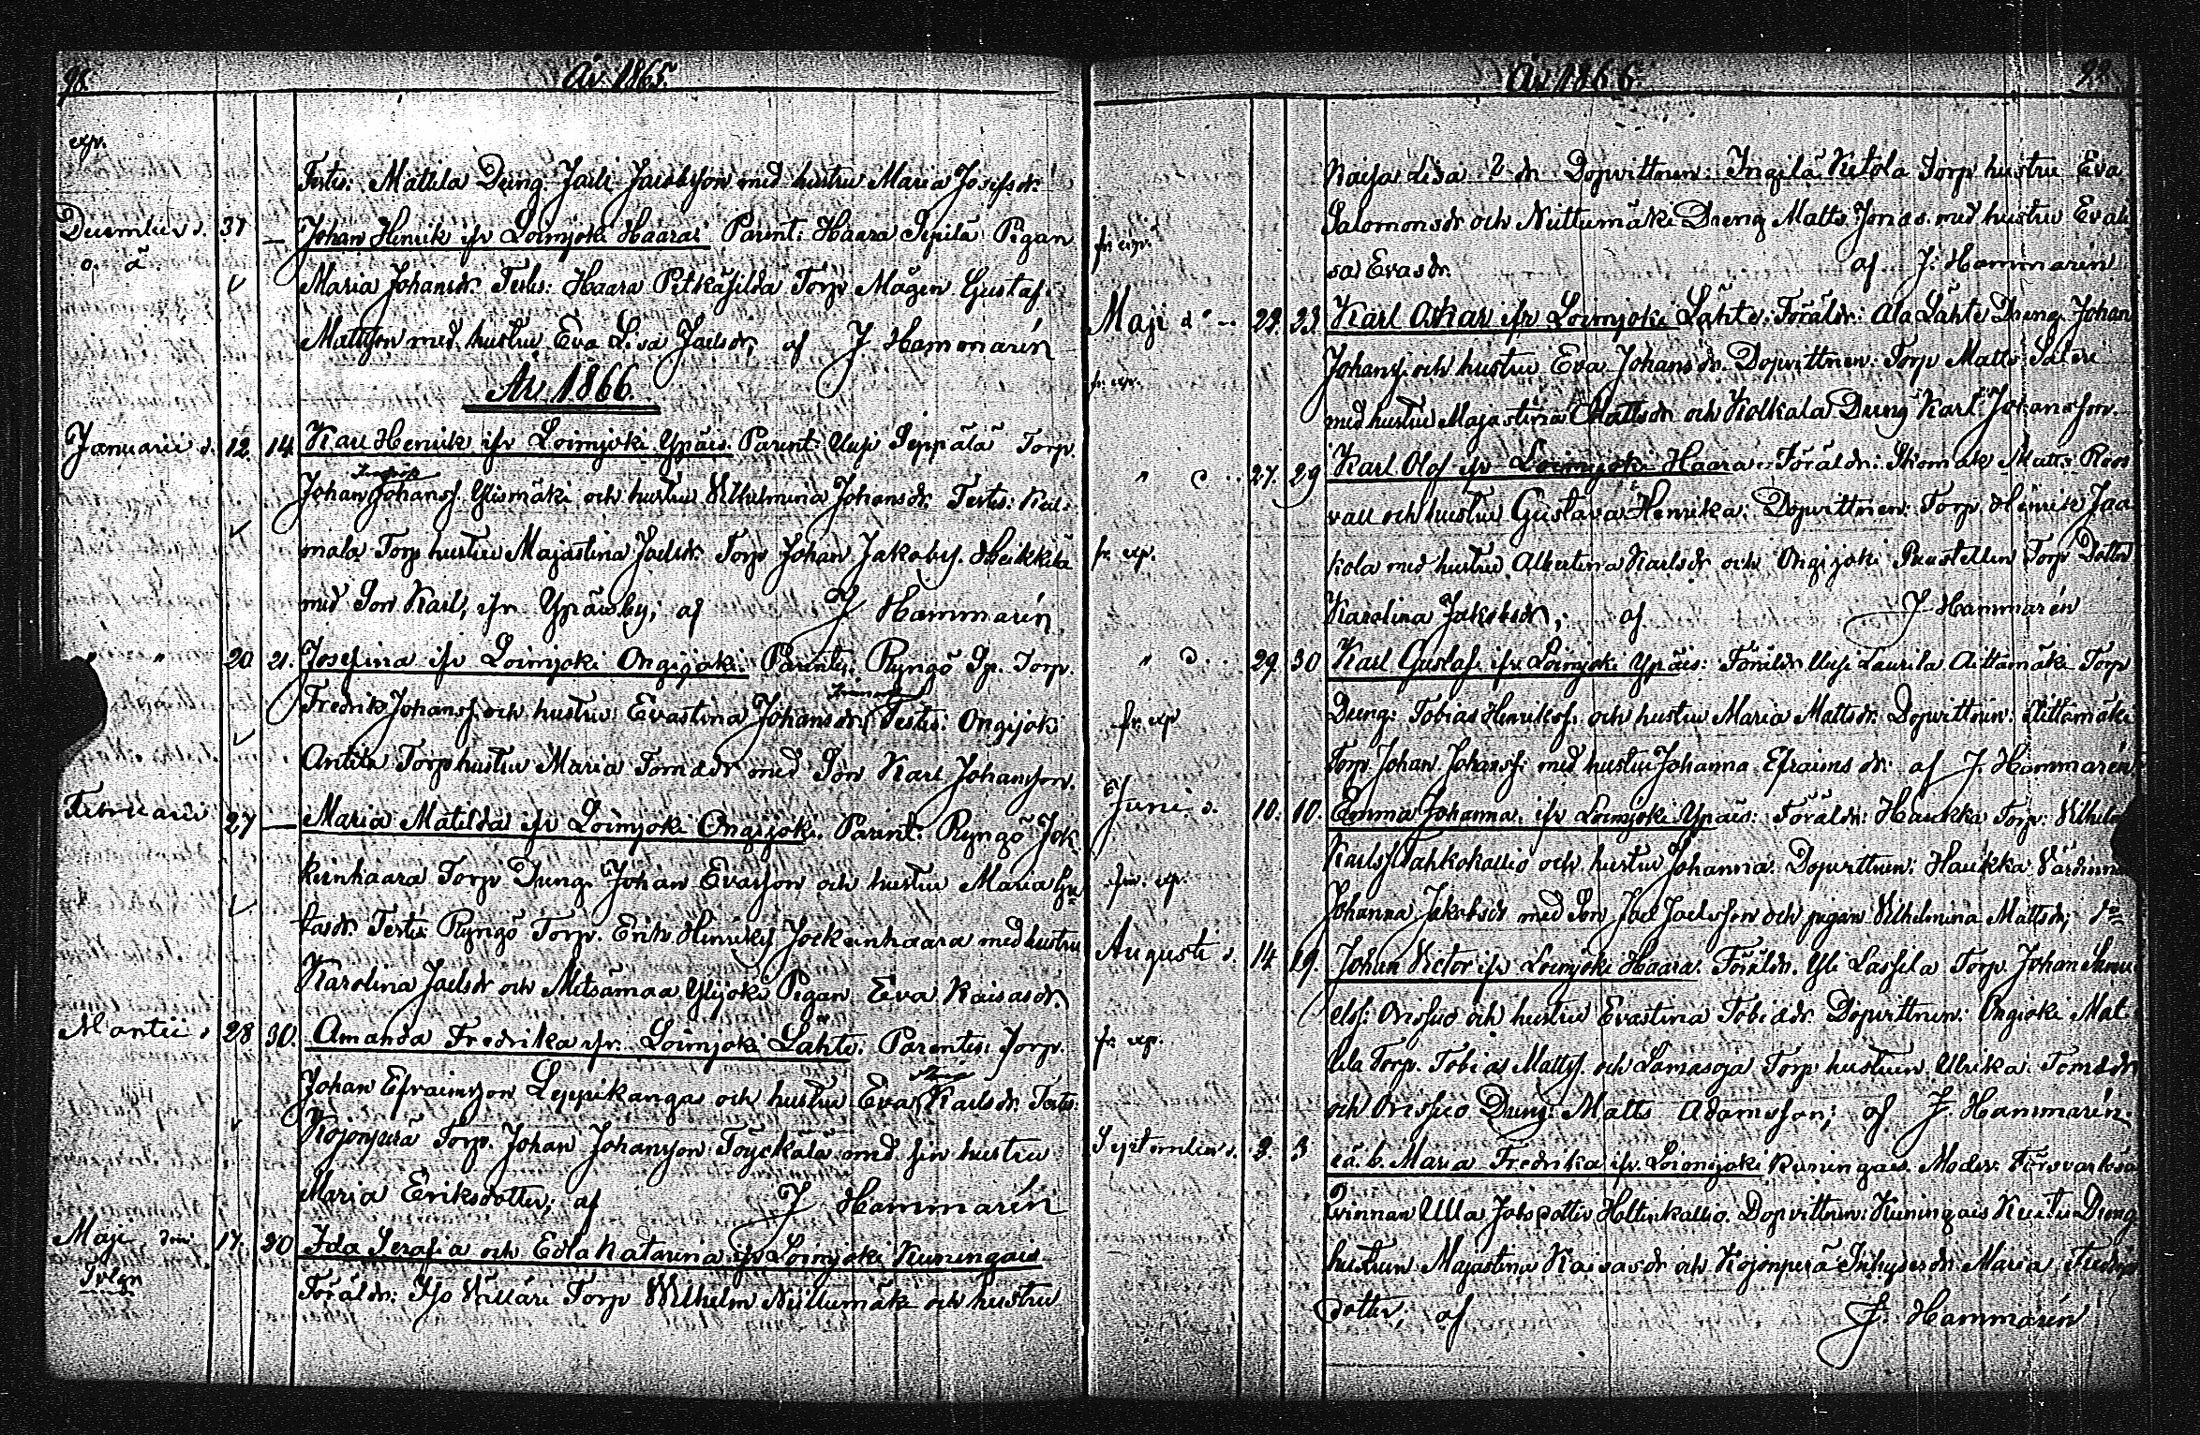 98.
År 1865.
exp.
Testes: Matilda Dräng Joel Jacobsson med hustru Maria Josefsdr.
December d. 31 — Johan Henrik ifr Loimijoki Haara: Parent: Haara Sepilä Pigan
o. ä.
Maria Johansdr. Testes: Haara Pitkäsilda Torp Mågen Gustaf
Mattsson med hustru Eva Lisa Joelsdr, af J Hammarén
År 1866.
Januarii d. 12. 14. Karl Henrik ifr Loimijoki Ypäis. Parent: Uusi Seppälä Torp.
Johan Johanss. Ylismäki och hustru Vilhelmina Johansdr. Testes: Kail-
mala Torp hustru Majastina Joelsdr. Torp Johan Jakobss. Heikkilä
med Son Karl, ifr Ypäisby; af J Hammarén
" " 20 21. Josefina ifr Loimijoki Ongijoki: Parentes: Ryngö Sp. Torp.
Fredrik Johanss. och hustru Evastina Johansdr. Testes: Ongijoki
Antila Torp hustru Maria Tomasdr med Son Karl Johansson.
Februarii 27 — Maria Matilda ifr Loimijoki Ongijoki. Parent: Ryngö Jok-
keinhaara Torp Dräng Johan Evasson och hustru Maria Gus-
tafsdr. Testes Ryngö Torp. Erik Henrikss Jockeinhaara med hustru
Karolina Joelsdr och Mitsämaa Ylijoki Pigan Eva Kaisasdr.
Martii d 28 30. Amanda Fredrika ifr. Loimijoki Lähte. Parentes: Torp.
Johan Efraimsson Leppikangas och hustru Eva Karlsdr. Testes:
Kojonperä Torp. Johan Johansson Töyckälä med sin hustru
Maria Eriksdotter; af J Hammarén
Maji den 17. 20 Ida Serafia och Edla Katarina ifr Loimijoki Kuningais
Tvlgn
Föräldr: Iso Välläri Torp Wilhelm Niittumäki och hustru
År 1866.
99.
Kaisa Lisa dr. Dopvittnen: Ingilä Ketola Torp hustru Eva
Salomonsdr och Niittumäki Dreng Matts Jonas. med hustru Evali-
fr. exp.
sa Evasdr. af J. Hammarén
Maji d " 22. 23. Karl Oskar ifr Loimijoki Lähte: Föräldr: Ala Lähte Dreng. Johan
Johanss. och hustru Eva Johansdr. Dopvittnen: Torp Matts Säteri
fr. exp.
med hustru Majastina Mattsdr och Kolkala Dreng Karl Johansson.
" d " 27. 29 Karl Olof ifr Loimijoki Haara: Föräldr: Skomak Matts Roos-
vall och hustru Gustava Henrika: Dopvittnen: Torp. Henrik Jaa-
fr. exp.
kola med hustru Albertina Karlsdr och Ongijoki Puustellin Torp Dotter
Karolina Jakobsdr; af J Hammarén
" d " 29. 30 Karl Gustaf ifr. Loimijoki Ypäis: Föräldr Uusi Laurila Aittamäki Torp
Dreng: Tobias Henrikss. och hustru Maria Mattsdr. Dopvittnen: Aittamäki
fr. exp
Torp. Johan Johanss: med hustru Johanna Efraimsdr: af J. Hammarén
Juni d. 10. 10. Emma Johanna. ifr Loimijoki Ypäis: Föräldr: Haukka Torp: Vilhelm
Karlss Nahkokallio och hustru Johanna. Dopvittnen: Haukka Värdinnan
fr. exp.
Johanna Jakobsdr med Son Joel Joelsson och pigan Vilhelmina Mattsdr;
Augusti d. 14 19. Johan Victor ifr Loimijoki Haara. Föräldr. Yli Lassila Torp. Johan Samu-
elss: Orisuo och hustru Evastina Tobiasdr. Dopvittnen: Ongioki Mat-
fr. exp.
tila Torp. Tobias Matts. och Lamasoja Torp hustrun Ulrika Tomasdr
och Orisuo Dreng: Matts Adamsson; af J. Hammarén.
September d. 2. 3 oä. b. Maria Fredrika ifr. Loimijoki Kuningais. Moder: Försvarlösa
Qvinnan Ulla Jakobsdotter Holtinkallio. Dopvittnen: Kuningais Kurtu Dreng
hustrun Majastina Kaisasdr och Kojonperä Inhysesdr Maria Fredriks-
dotter, af J. Hammarén